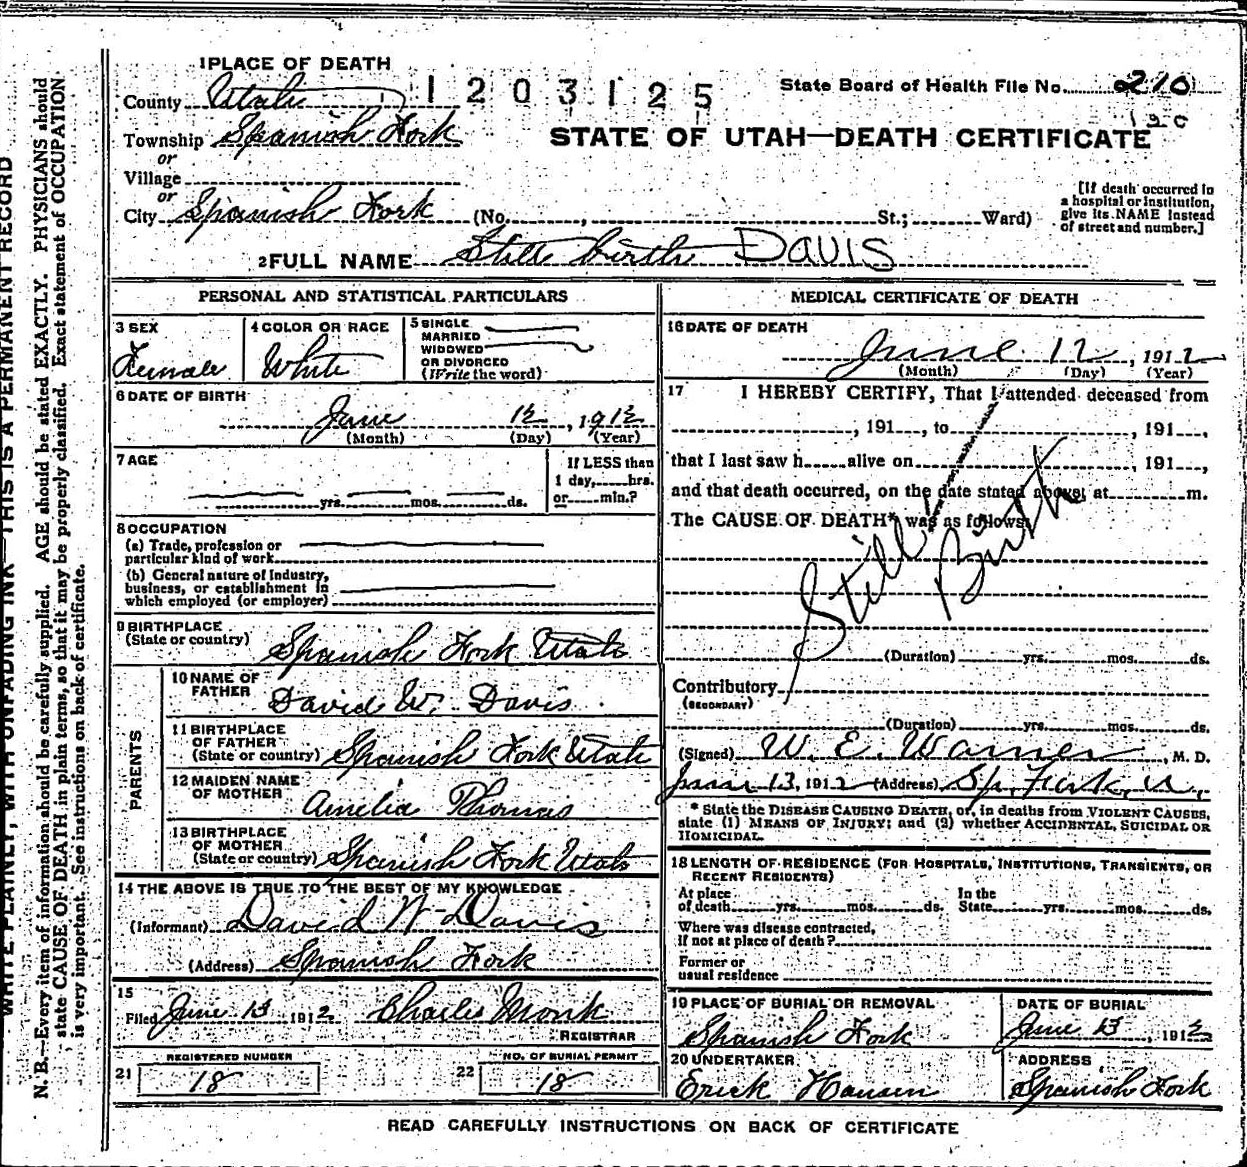 1 PLACE OF DEATH
County Utah 1203125 State Board of Health File No. 210
Township Spanish Fork STATE OF UTAH—DEATH CERTIFICATE
or
Village
or
City Spanish Fork (No. , St.; Ward)
[If death occurred in
a hospital or institution,
give its NAME instead
of street and number.]
2 FULL NAME Still birth DAVIS
PERSONAL AND STATISTICAL PARTICULARS
3 SEX
Female
4 COLOR OR RACE
White
5 SINGLE
MARRIED
WIDOWED
OR DIVORCED
(Write the word)
6 DATE OF BIRTH
June 12, 1912
(Month) (Day) (Year)
7 AGE
yrs. mos. ds.
If LESS than
1 day, hrs.
or min.?
8 OCCUPATION
(a) Trade, profession or
particular kind of work
(b) General nature of Industry,
business, or establishment in
which employed (or employer)
9 BIRTHPLACE
(State or country) Spanish Fork Utah
PARENTS
10 NAME OF
FATHER David W. Davis
11 BIRTHPLACE
OF FATHER
(State or country) Spanish Fork Utah
12 MAIDEN NAME
OF MOTHER Amelia Thomas
13 BIRTHPLACE
OF MOTHER
(State or country) Spanish Fork Utah
14 THE ABOVE IS TRUE TO THE BEST OF MY KNOWLEDGE
(Informant) David W Davis
(Address) Spanish Fork
15
Filed June 13 1912 Charles Monk
REGISTRAR
REGISTERED NUMBER
21 18
NO. OF BURIAL PERMIT
22 18
MEDICAL CERTIFICATE OF DEATH
16 DATE OF DEATH
June 12, 1912
(Month) (Day) (Year)
17 I HEREBY CERTIFY, That I attended deceased from
, 191 , to , 191 ,
that I last saw h alive on , 191 ,
and that death occurred, on the date stated above, at m.
The CAUSE OF DEATH* was as follows:
Still Birth
(Duration) yrs. mos. ds.
Contributory
(SECONDARY)
(Duration) yrs. mos. ds.
(Signed) W. E. Warner, M. D.
June 13, 1912 (Address) Sp. Fork, U.
* State the DISEASE CAUSING DEATH, or, in deaths from VIOLENT CAUSES,
state (1) MEANS OF INJURY; and (2) whether ACCIDENTAL, SUICIDAL OR
HOMICIDAL.
18 LENGTH OF RESIDENCE (FOR HOSPITALS, INSTITUTIONS, TRANSIENTS, OR
RECENT RESIDENTS)
At place
of death yrs. mos. ds.
In the
State yrs. mos. ds.
Where was disease contracted,
If not at place of death?
Former or
usual residence
19 PLACE OF BURIAL OR REMOVAL
Spanish Fork
DATE OF BURIAL
June 13, 1912
20 UNDERTAKER
Erick Hansen
ADDRESS
Spanish Fork
READ CAREFULLY INSTRUCTIONS ON BACK OF CERTIFICATE
WRITE PLAINLY, WITH UNFADING INK—THIS IS A PERMANENT RECORD
N. B.—Every item of information should be carefully supplied. AGE should be stated EXACTLY. PHYSICIANS should
state CAUSE OF DEATH in plain terms, so that it may be properly classified. Exact statement of OCCUPATION
is very important. See instructions on back of certificate.